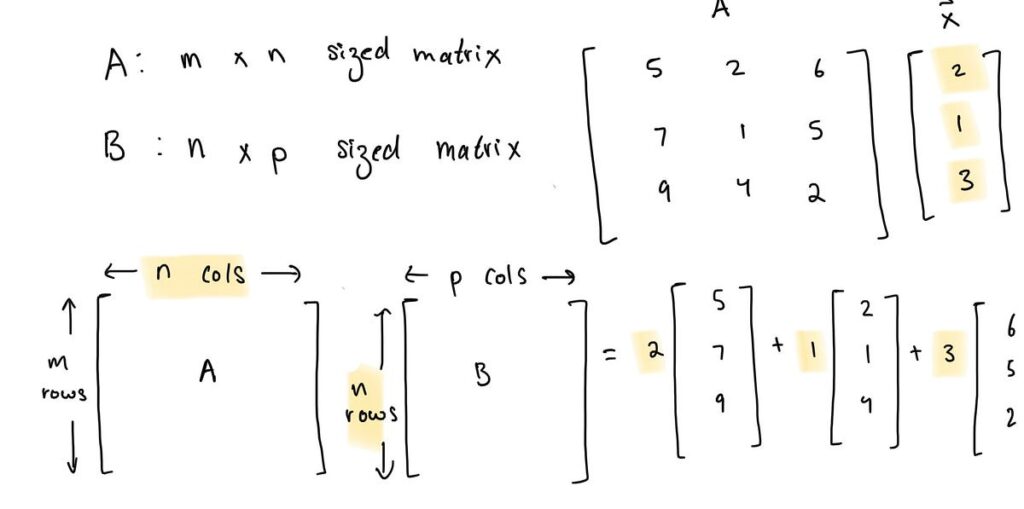 A: m x n sized matrix
B : n x p sized matrix
A
x
5 2 6
7 1 5
9 4 2
2
1
3
← n cols →
m
rows
A
← p cols →
n
rows
B
= 2
5
7
9
+ 1
2
1
4
+ 3
6
5
2